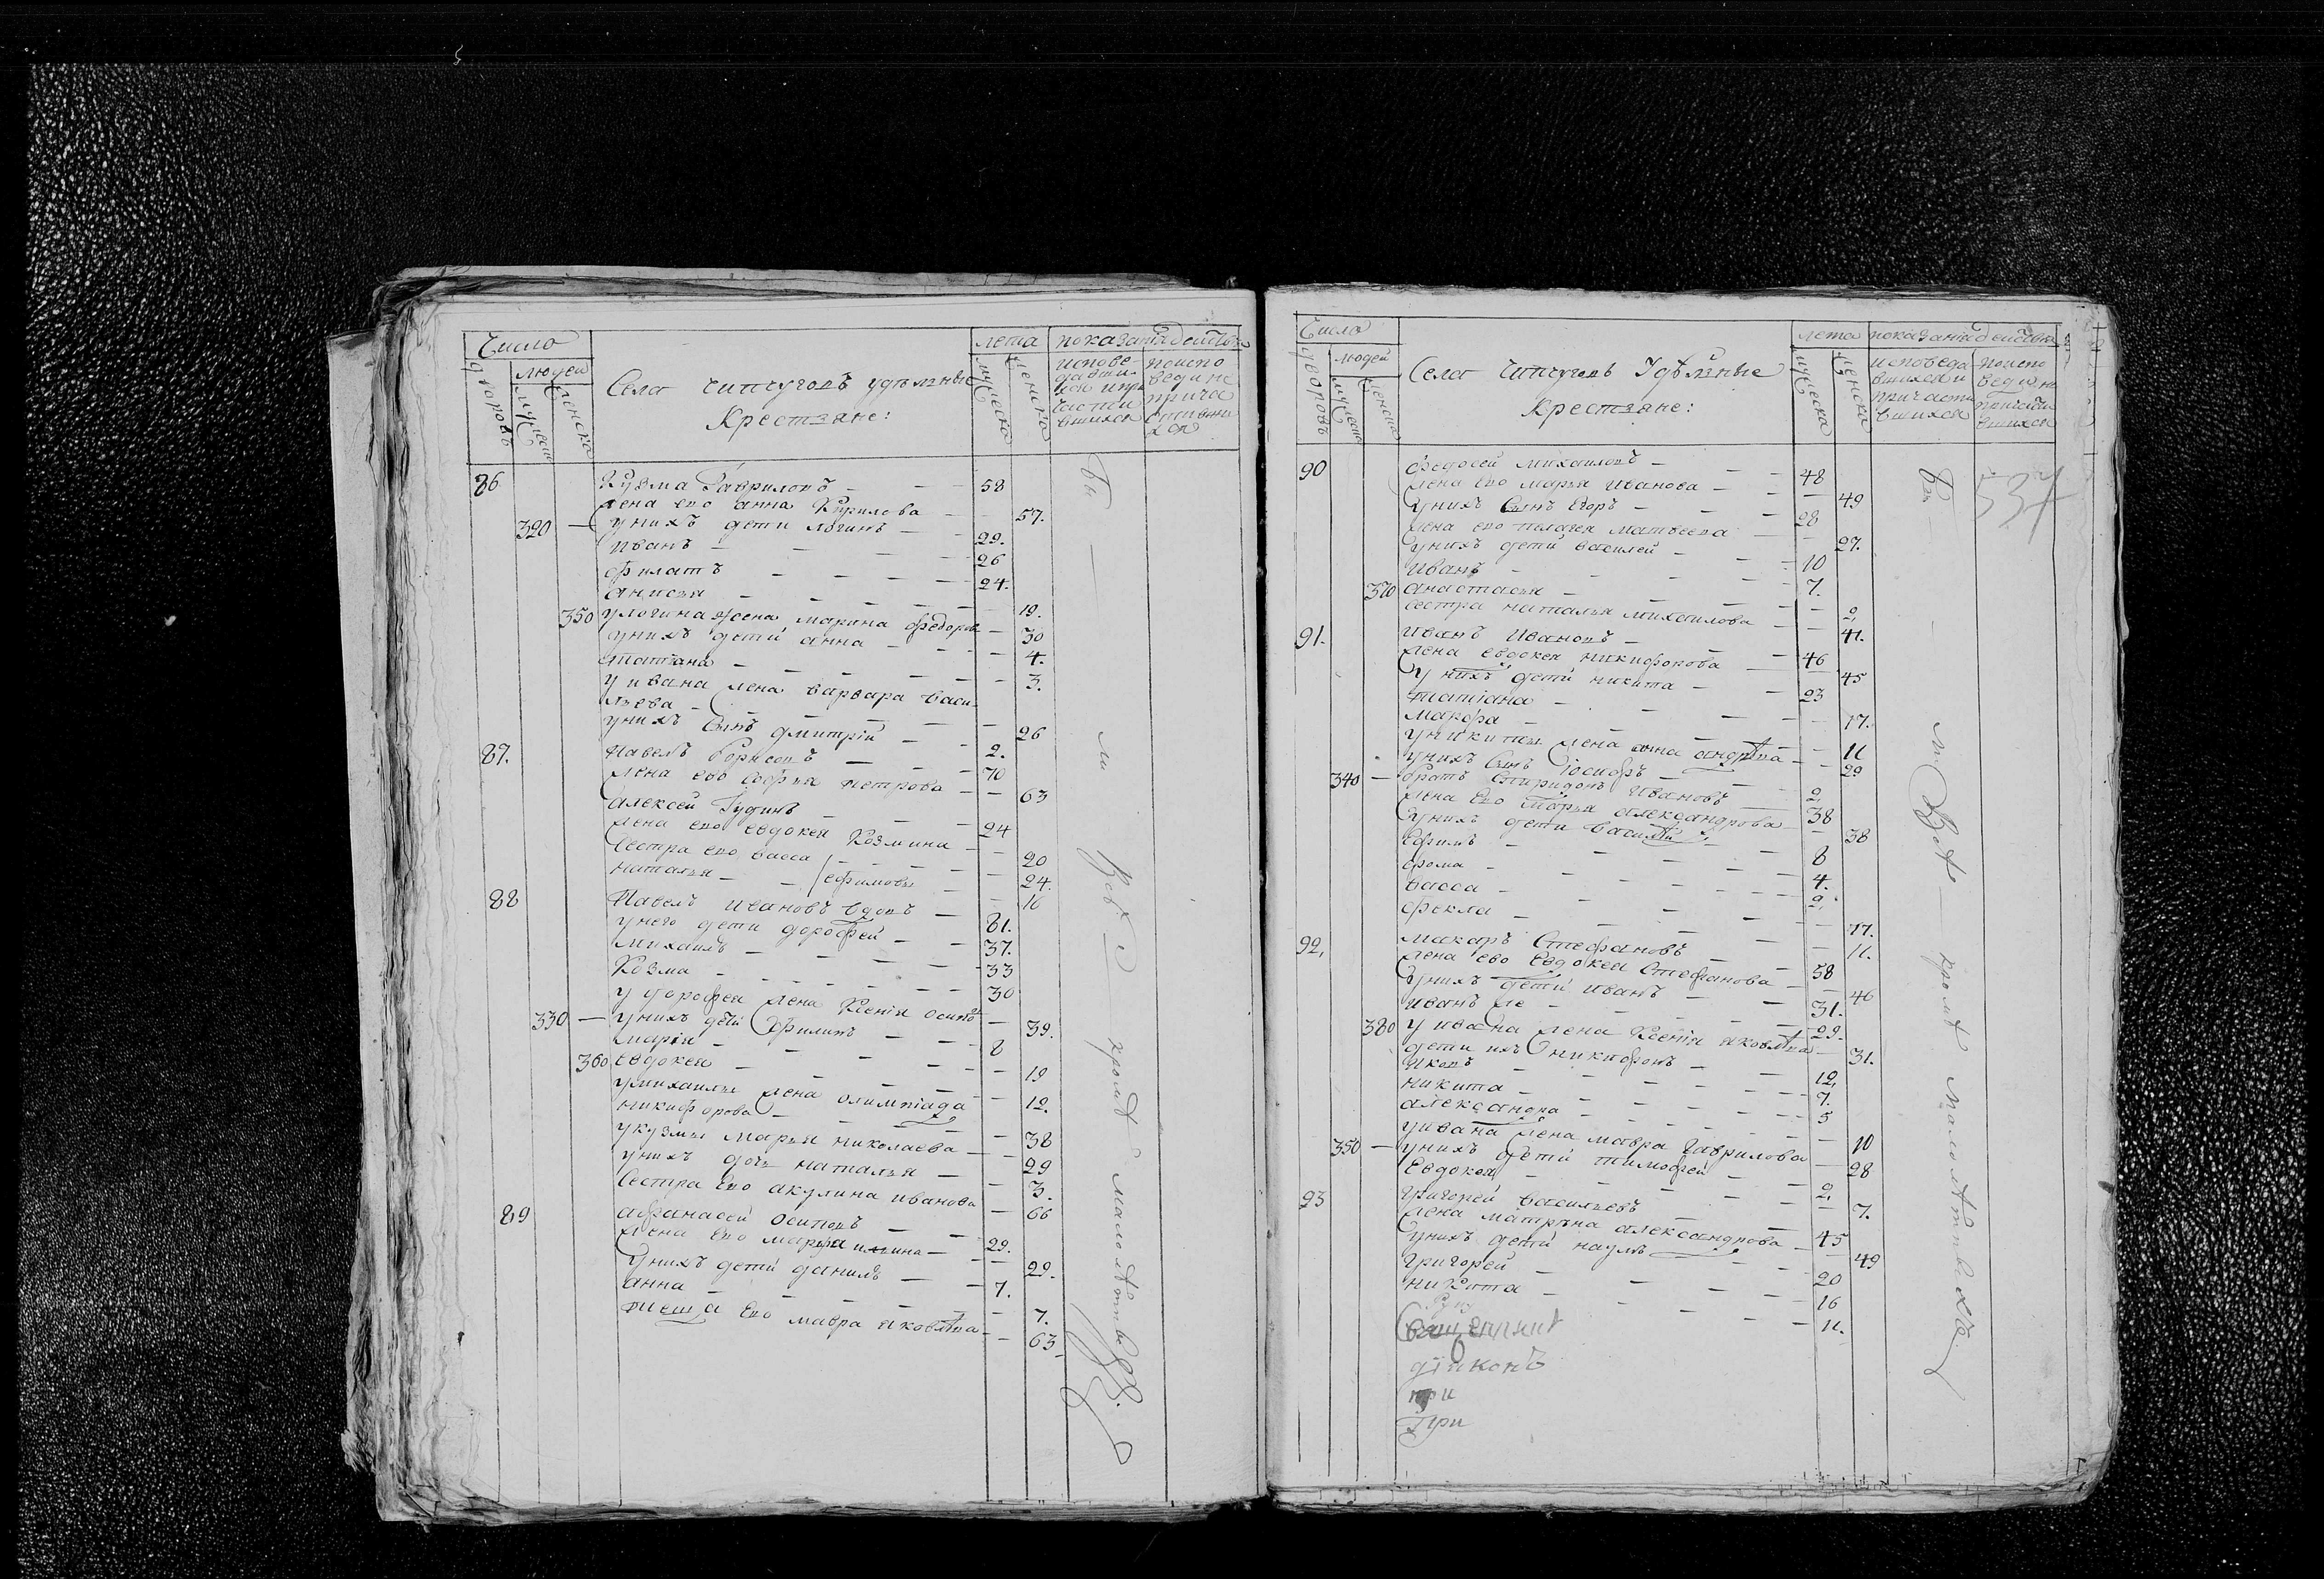 Число
людей
дворовъ
мужеска
женска
Село Чипчуговъ удѣлные
Крестьяне:
лета
мужеска
женска
показаніе действъ
исповедавши
ся и при
частившихся
исповедине
прича
86 Кузма Гавриловъ — 58
жена ево анна Кирилова — 57.
320 — у нихъ дети логинъ — 29.
Иванъ — 26
филатъ — 24.
анисья — 19.
350 у логина жена марина федорова — 30
у нихъ дети анна — 4.
татіана — 3.
у ивана жена варвара васи
льева — 26
у нихъ сынъ дмитрій — 2.
87. Павелъ Борисовъ — 70
жена ево софья петрова — 63
алексей Гудинъ — 24
жена ево евдокея Козмина — 20
сестра ево васса — 24.
наталья — ефимовы — 16
88 Павелъ ивановъ вдовъ — 81.
у него дети дорофей — 37.
михаилъ — 33
Козма — 30
у дорофея жена Ксенія осипова — 39.
330 — у нихъ дети филипъ — 8
марія — 19
360 евдокея — 12.
у михаилы жена олимпіада
никифорова — 38
у кузмы марья николаева — 29
у нихъ дочь наталья — 3.
сестра ево акулина иванова — 66
89 афанасей осиповъ — 29.
жена ево марфа ильина — 29.
у нихъ дети данилъ — 7.
анна — 7.
теща ево мавра яковлева — 63
бы — ли Всѣ — кромѣ малолѣтныхъ.
Число
людей
дворовъ
мужеска
женска
Село Чипчуговъ Удѣлные
Крестьяне:
лета
мужеска
женска
показаніе действъ
исповеда
вшихся и
причасти
вшихся
537
90 федосей михаиловъ — 48
жена ево марья Иванова — 49
у нихъ сынъ Егоръ — 28
жена ево пелагея матвеева — 27.
у нихъ дети василей — 10
Иванъ — 7.
370 анастасья — 2,
сестра наталья михаилова — 41.
91. Иванъ Ивановъ — 46
жена евдокея никифорова — 45
у нихъ дети никита — 23
татіана — 17.
марфа — 11
у никиты жена анна андрѣева — 29
у нихъ сынъ іосифъ — 2,
340 — братъ спиридонъ Ивановъ — 38
жена Ево марья александрова — 38
у нихъ дети василій — 8
Ефимъ — 4.
фома — 2,
васса — 17.
фекла — 11.
92, макаръ Стефановъ — 58
жена ево Евдокея Степанова — 46
у нихъ дети иванъ — 31.
иванъ же — 29.
380 у ивана жена Ксенія яковлева — 31.
дети ихъ никифоръ — 12,
яковъ — 7.
никита — 5
александра — 10
у ивана жена мавра Гаврилова — 28
350 — у нихъ дети тимофей — 2,
Евдокея — 7.
93 григорей васильевъ — 45
жена матрена александрова — 49
у нихъ дети наумъ — 20
Григорей — 16
никита — 11.
діаконъ
при
При
бы — ли Всѣ — кромѣ малолѣтныхъ.